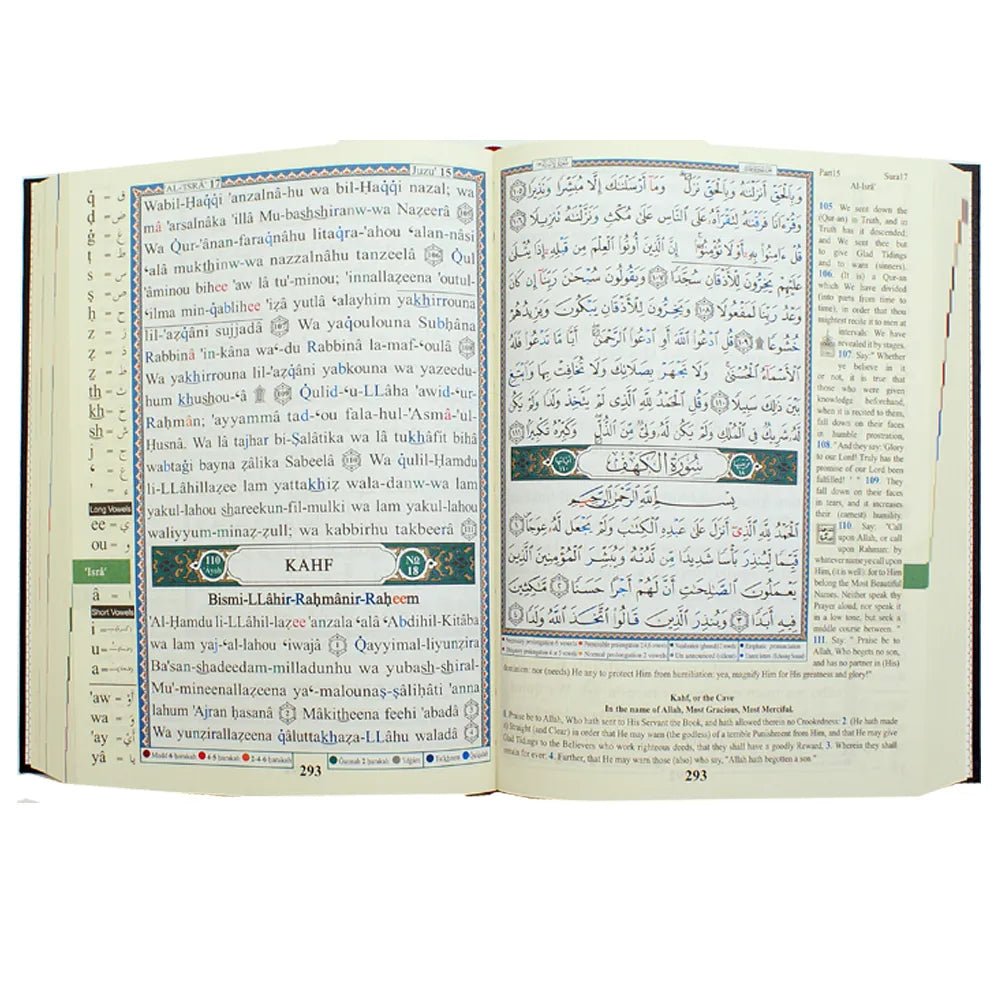 AL-'ISRÂ' 17
Juzu' 15
Wabil-Ḥaqqi 'anzalnâ-hu wa bil-Ḥaqqi nazal; wa
mâ 'arsalnâka 'illâ Mu-bashshiranw-wa Nazeerâ
Wa Qur-'ânan-faraqnâhu litaqra-'ahou ʻalan-nâsi
ʻalâ mukthinw-wa nazzalnâhu tanzeelâ
Qul
'âminou bihee 'aw lâ tu-minou; 'innallaẓeena 'outul-
ʻilma min-qablihee 'iẓâ yutlâ ʻalayhim yakhirrouna
lil-'aẓqâni sujjadâ 107 Wa yaqoulouna Subḥâna
Rabbinâ 'in-kâna waʻ-du Rabbinâ la-maf-ʻoulâ
Wa yakhirrouna lil-'aẓqâni yabkouna wa yazeedu-
hum khushou-ʻâ 109 Qulid-ʻu-LLâha 'awid-ʻur-
Raḥmân; 'ayyammâ tad-ʻou fala-hul-'Asmâ-'ul-
Ḥusnâ. Wa lâ tajhar bi-Ṣalâtika wa lâ tukhâfit bihâ
wabtaġi bayna ẓâlika Sabeelâ 110 Wa qulil-Ḥamdu
li-LLâhillaẓee lam yattakhiẓ wala-danw-wa lam
yakul-lahou shareekun-fil-mulki wa lam yakul-lahou
waliyyum-minaẓ-ẓull; wa kabbirhu takbeerâ
110 Ayah
KAHF
No 18
Bismi-LLâhir-Raḥmânir-Raḥeem
'Al-Ḥamdu li-LLâhil-laẓee 'anzala ʻalâ ʻAbdihil-Kitâba
wa lam yajʻal-lahou ʻiwajâ 1 Qayyimal-liyunẓira
Ba'san-shadeedam-milladunhu wa yubash-shiral-
Mu'-mineenallaẓeena yaʻ-malounaṣ-ṣâliḥâti 'anna
lahum 'Ajran ḥasanâ 2 Mâkitheena feehi 'abadâ 3
Wa yunẓirallaẓeena qâluttakhaẓa-LLâhu waladâ 4
293
q = ق
ḍ = ض
ġ = غ
ṭ = ط
s = س
ṣ = ص
ḥ = ح
z = ز
ẓ = ذ
th = ث
kh = خ
sh = ش
j = ج
ʻ = ع
' = ء
Long Vowels
ee = ي
ou = و
'Isrâ'
â = ا
Short Vowels
i =
u =
a =
'aw = أو
wa = و
'ay = أي
yâ = يا
وَبِالْحَقِّ أَنزَلْنَاهُ وَبِالْحَقِّ نَزَلَ ۗ وَمَا أَرْسَلْنَاكَ إِلَّا مُبَشِّرًا وَنَذِيرًا ١٠٥
وَقُرْءَانًا فَرَقْنَاهُ لِتَقْرَأَهُ عَلَى النَّاسِ عَلَىٰ مُكْثٍ وَنَزَّلْنَاهُ تَنزِيلًا ١٠٦
قُلْ ءَامِنُوا بِهِ أَوْ لَا تُؤْمِنُوا ۚ إِنَّ الَّذِينَ أُوتُوا الْعِلْمَ مِن قَبْلِهِ إِذَا يُتْلَىٰ
عَلَيْهِمْ يَخِرُّونَ لِلْأَذْقَانِ سُجَّدًا ١٠٧ وَيَقُولُونَ سُبْحَانَ رَبِّنَا إِن كَانَ
وَعْدُ رَبِّنَا لَمَفْعُولًا ١٠٨ وَيَخِرُّونَ لِلْأَذْقَانِ يَبْكُونَ وَيَزِيدُهُمْ
خُشُوعًا ۩ ١٠٩ قُلِ ادْعُوا اللَّهَ أَوِ ادْعُوا الرَّحْمَٰنَ ۖ أَيًّا مَّا تَدْعُوا فَلَهُ
الْأَسْمَاءُ الْحُسْنَىٰ ۚ وَلَا تَجْهَرْ بِصَلَاتِكَ وَلَا تُخَافِتْ بِهَا وَابْتَغِ
بَيْنَ ذَٰلِكَ سَبِيلًا ١١٠ وَقُلِ الْحَمْدُ لِلَّهِ الَّذِي لَمْ يَتَّخِذْ وَلَدًا وَلَمْ يَكُن
لَّهُ شَرِيكٌ فِي الْمُلْكِ وَلَمْ يَكُن لَّهُ وَلِيٌّ مِّنَ الذُّلِّ ۖ وَكَبِّرْهُ تَكْبِيرًا ١١١
سُورَةُ الْكَهْفِ
بِسْمِ اللَّهِ الرَّحْمَٰنِ الرَّحِيمِ
الْحَمْدُ لِلَّهِ الَّذِي أَنزَلَ عَلَىٰ عَبْدِهِ الْكِتَابَ وَلَمْ يَجْعَل لَّهُ عِوَجًا ١
قَيِّمًا لِّيُنذِرَ بَأْسًا شَدِيدًا مِّن لَّدُنْهُ وَيُبَشِّرَ الْمُؤْمِنِينَ الَّذِينَ
يَعْمَلُونَ الصَّالِحَاتِ أَنَّ لَهُمْ أَجْرًا حَسَنًا ٢ مَّاكِثِينَ
فِيهِ أَبَدًا ٣ وَيُنذِرَ الَّذِينَ قَالُوا اتَّخَذَ اللَّهُ وَلَدًا ٤
Part15 Sura17
Al-Isrâ'
105. We sent down the
(Qur-an) in Truth, and in
Truth has it descended:
and We sent thee but
to give Glad Tidings
and to warn (sinners).
106. (It is) a Qur-an
which We have divided
(into parts from time to
time), in order that thou
mightest recite it to men at
intervals: We have
revealed it by stages.
107. Say:" Whether
ye believe in it
or not, it is true that
those who were given
knowledge beforehand,
when it is recited to them,
fall down on their faces
in humble prostration,
108. "And they say:'Glory
to our Lord! Truly has the
promise of our Lord been
fulfilled! ' " 109 They
fall down on their faces
in tears, and it increases
their (earnest) humility.
110. Say: "Call
upon Allah, or call
upon Rahman: by
whatever name ye call upon
Him, (it is well): for to Him
belong the Most Beautiful
Names. Neither speak thy
Prayer aloud, nor speak it
in a low tone, but seek a
middle course between. "
111. Say: " Praise be to
Allah, Who begets no son,
and has no partner in (His)
dominion: nor (needs) He any to protect Him from humiliation: yea, magnify Him for His greatness and glory!"
Kahf, or the Cave
In the name of Allah, Most Gracious, Most Merciful.
1. Praise be to Allah, Who hath sent to His Servant the Book, and hath allowed therein no Crookedness: 2. (He hath made
it) Straight (and Clear) in order that He may warn (the godless) of a terrible Punishment from Him, and that He may give
Glad Tidings to the Believers who work righteous deeds, that they shall have a goodly Reward, 3. Wherein they shall
remain for ever: 4. Further, that He may warn those (also) who say, "Allah hath begotten a son "
293